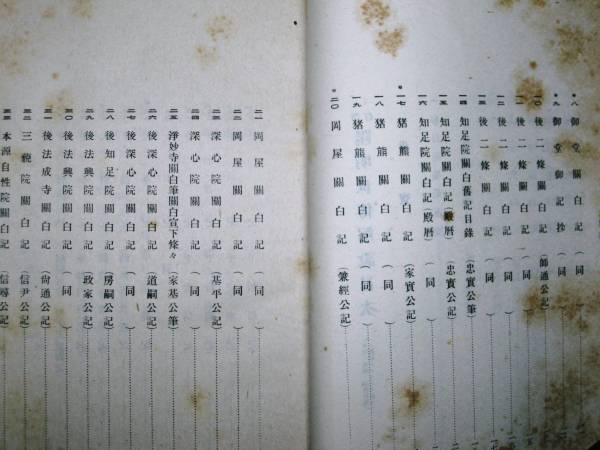 *八 御堂關白記 (同)
*九 御堂御記抄 (同)
一〇 後二條關白記 (師通公記)
一一 後二條關白記 (同)
一二 後二條關白記 (同)
一三 後二條關白記 (同)
*一四 知足院關白舊記目錄 (忠實公筆)
*一五 知足院關白記(殿曆) (忠實公記)
一六 知足院關白記(殿曆) (同)
*一七 猪熊關白記 (家實公記)
一八 猪熊關白記 (同)
一九 猪熊關白記 (同)
*二〇 岡屋關白記 (兼經公記)
二一 岡屋關白記 (同)
二二 岡屋關白記 (同)
二三 深心院關白記 (基平公記)
二四 深心院關白記 (同)
二五 淨妙寺關白筆關白宣下條々 (家基公筆)
二六 後深心院關白記 (道嗣公記)
二七 後深心院關白記 (同)
二八 後知足院關白記 (房嗣公記)
二九 後法興院關白記 (政家公記)
三〇 後法興院關白記 (同)
三一 後法成寺關白記 (尙通公記)
三二 三藐院關白記 (信尹公記)
三三 本源自性院關白記 (信尋公記)